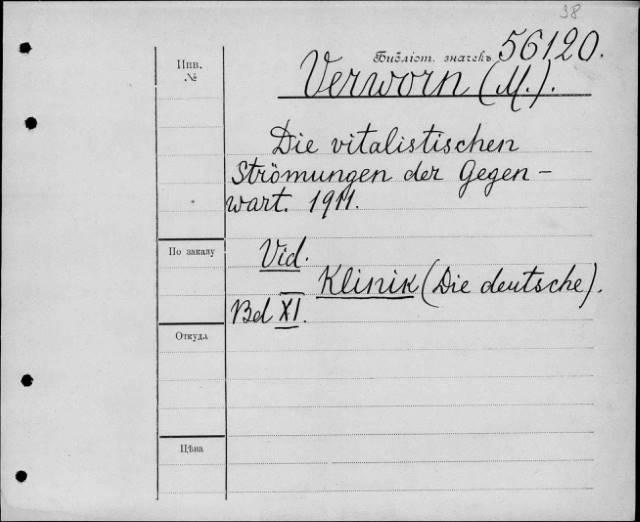 38
Библіот. значекъ 56120.
Инв.
№
Verworn (M.).
Die vitalistischen
Strömungen der Gegen-
wart. 1911.
По заказу
Vid.
Klinik (Die deutsche).
Bd XI.
Откуда
Цѣна